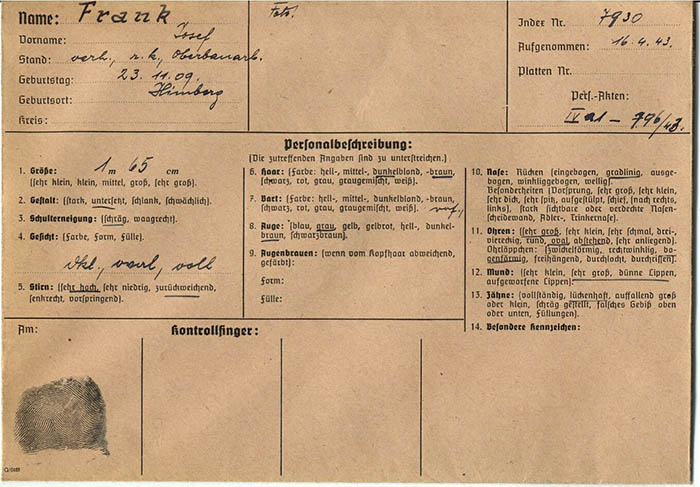 Name: Frank
Vorname: Josef
Stand: verh., r. k., Oberbauarb.
Geburtstag: 23. 11. 09.
Geburtsort: Himberg
Kreis:
Foto.
Index Nr. 7930
Aufgenommen: 16. 4. 43.
Platten Nr.
Pers.-Akten:
IV a1 - 796/43.
Personalbeschreibung:
(Die zutreffenden Angaben sind zu unterstreichen.)
1. Größe: 1 m 65 cm
(sehr klein, klein, mittel, groß, sehr groß).
2. Gestalt: (stark, untersetzt, schlank, schwächlich).
3. Schulterneigung: (schräg, waagrecht).
4. Gesicht: (Farbe, Form, Fülle).
dkl., oval, voll
5. Stirn: (sehr hoch, sehr niedrig, zurückweichend,
senkrecht, vorspringend).
6. Haar: (Farbe: hell-, mittel-, dunkelblond, -braun,
schwarz, rot, grau, graugemischt, weiß).
7. Bart: (Farbe: hell-, mittel-, dunkelblond, -braun,
schwarz, rot, grau, graugemischt, weiß).
8. Auge: (blau, grau, gelb, gelbrot, hell-, dunkel-
braun, schwarzbraun).
9. Augenbrauen: (wenn vom Kopfhaar abweichend,
gefärbt):
Form:
Fülle:
10. Nase: Rücken (eingebogen, gradlinig, ausge-
bogen, winkliggebogen, wellig).
Besonderheiten (Vorsprung, sehr groß, sehr klein,
sehr dick, sehr spitz, aufgestülpt, schief (nach rechts,
links), stark sichtbare oder verdeckte Nasen-
scheidewand, Adler-, Trinkernase).
11. Ohren: (sehr groß, sehr klein, sehr schmal, drei-,
viereckig, rund, oval, abstehend, sehr anliegend).
Ohrläppchen: (zwickelförmig, rechtwinklig, bo-
genförmig, freihängend, durchlocht, durchrissen).
12. Mund: (sehr klein, sehr groß, dünne Lippen,
aufgeworfene Lippen).
13. Zähne: (vollständig, lückenhaft, auffallend groß
oder klein, schräg gestellt, falsches Gebiß oben
oder unten, Füllungen).
14. Besondere Kennzeichen:
Am:
Kontrollfinger: